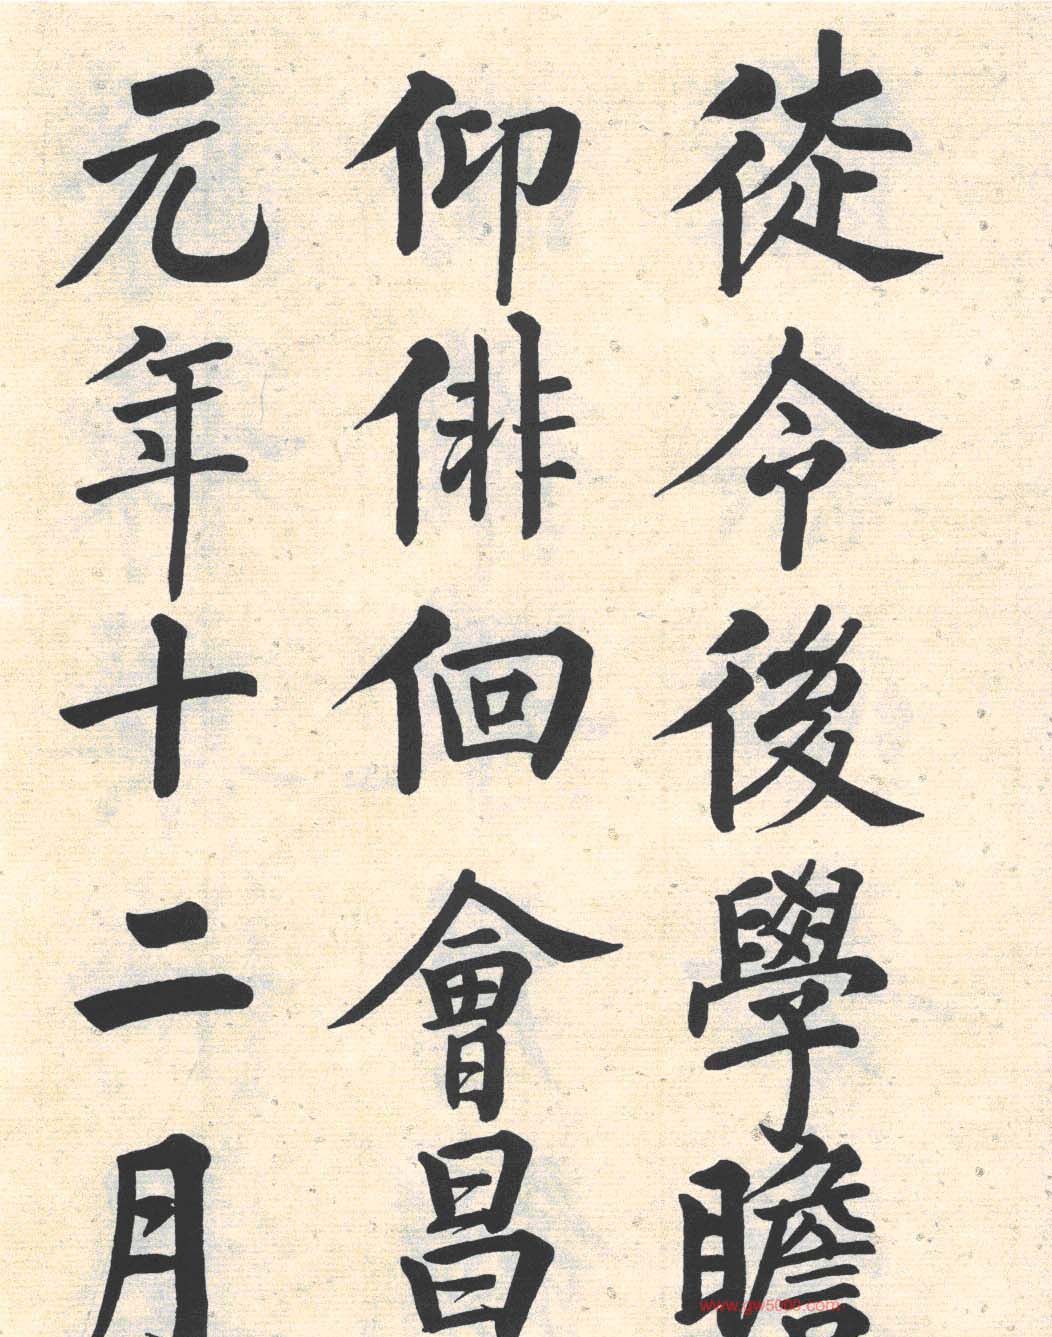 徒令後學瞻
仰俳佪會昌
元年十二月
www.gw5000.com